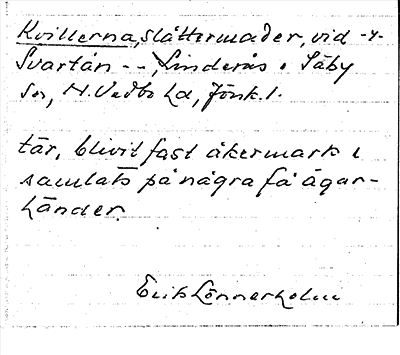 Kvillerna, slåttermader, vid -y-
Svartån - -, Linderås o Säby
sn, N. Vedbo hd, Jönk. l.
tär, blivit fast åkermark o
samlats på några få ägar-
händer.
Erik Lönnerholm